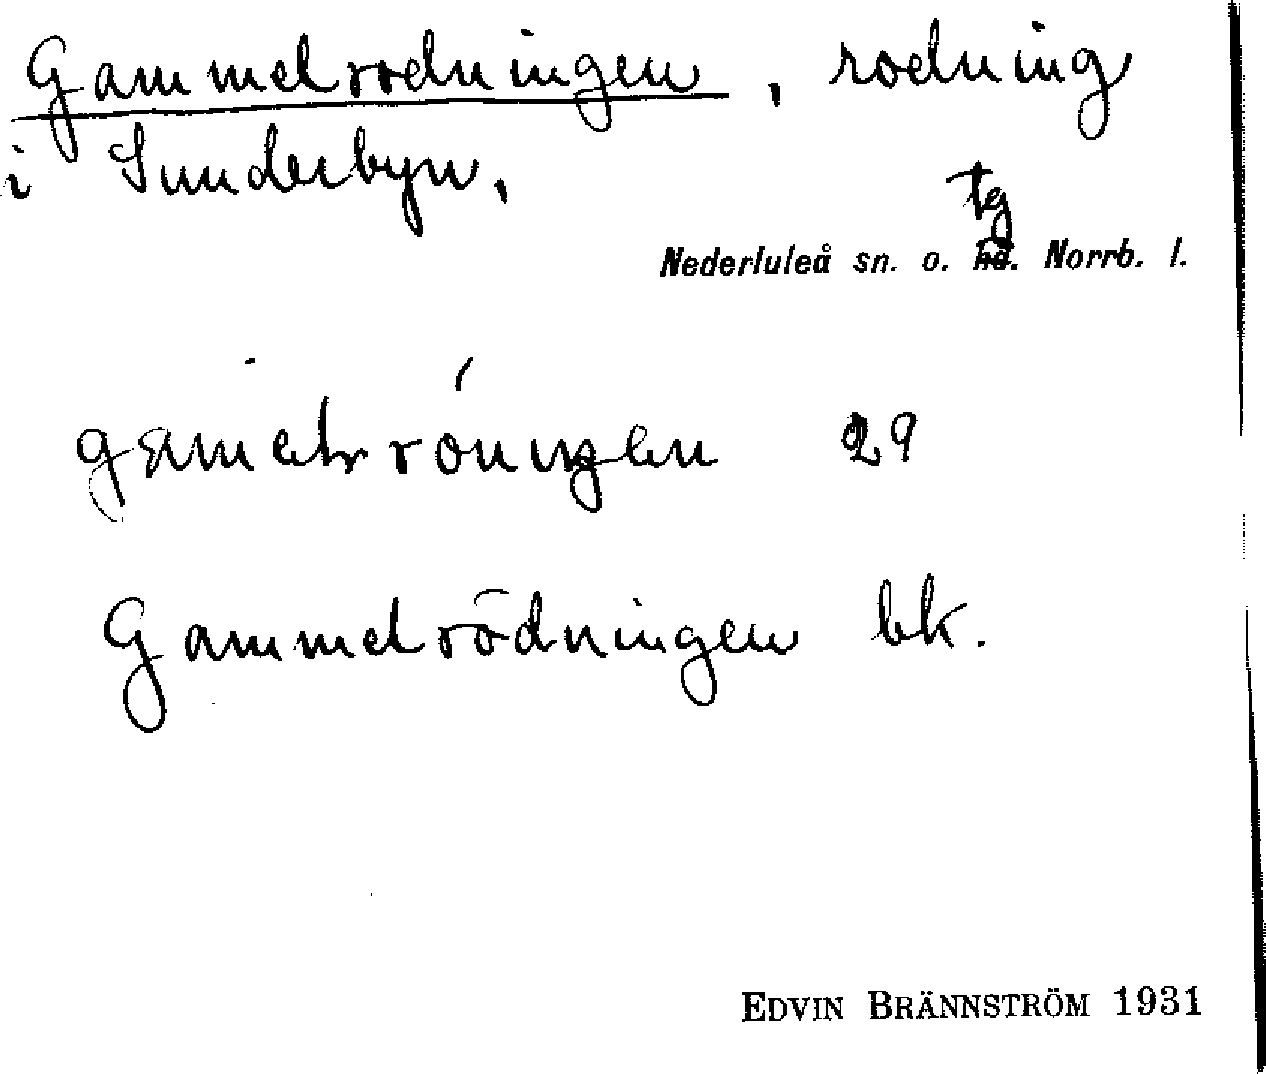 Gammelrodningen, rodning
i Sunderbyn,
tg
Nederluleå sn. o. hd. Norrb. l.
29
Gammelrödningen bk.
EDVIN BRÄNNSTRÖM 1931